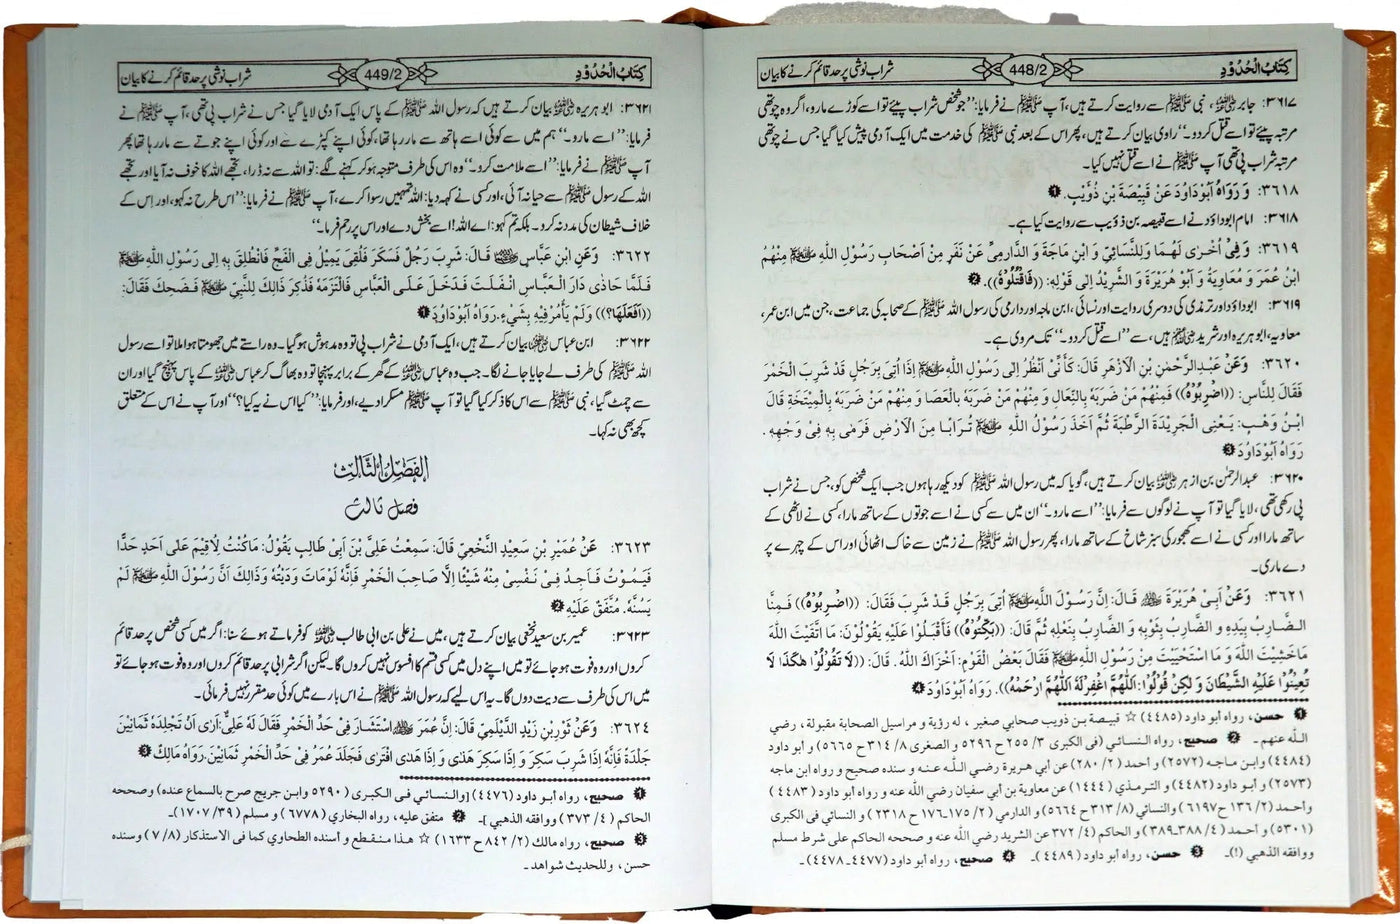 كِتَابُ الْحُدُوْدِ 448/2 شراب نوشی پر حد قائم کرنے کا بیان
۳۶۱۷: جابر ؓ، نبی ﷺ سے روایت کرتے ہیں، آپ ﷺ نے فرمایا: ’’جو شخص شراب پیئے تو اسے کوڑے مارو، اگر وہ چوتھی
مرتبہ پیئے تو اسے قتل کر دو۔‘‘ راوی بیان کرتے ہیں، پھر اس کے بعد نبی ﷺ کی خدمت میں ایک آدمی پیش کیا گیا جس نے چوتھی
مرتبہ شراب پی تھی آپ ﷺ نے اسے قتل نہیں کیا۔
۳۶۱۸: وَ رَوَاهُ اَبُوْدَاوُدَ عَنْ قَبِيْصَةَ بْنِ ذُؤَيْبٍ. ❶
۳۶۱۸: امام ابوداؤد نے اسے قبیصہ بن ذؤیب سے روایت کیا ہے۔
۳۶۱۹: وَفِيْ اُخْرٰى لَهُمَا وَلِلنَّسَائِيِّ وَ ابْنِ مَاجَةَ وَ الدَّارِمِيِّ عَنْ نَفَرٍ مِنْ اَصْحَابِ رَسُوْلِ اللّٰهِ ﷺ مِنْهُمُ
ابْنُ عُمَرَ وَ مُعَاوِيَةُ وَ اَبُوْ هُرَيْرَةَ وَ الشَّرِيْدُ اِلٰى قَوْلِهِ: ((فَاقْتُلُوْهُ)). ❷
۳۶۱۹: ابوداؤد اور ترمذی کی دوسری روایت اور نسائی، ابن ماجہ اور دارمی کی رسول اللہ ﷺ کے صحابہ کی جماعت، جن میں ابن عمر،
معاویہ، ابو ہریرہ اور شرید ؓ ہیں، سے ’’اسے قتل کر دو۔‘‘ تک مروی ہے۔
۳۶۲۰: وَعَنْ عَبْدِالرَّحْمٰنِ بْنِ الْاَزْهَرِ قَالَ: كَاَنِّيْ اَنْظُرُ اِلٰى رَسُوْلِ اللّٰهِ ﷺ اِذَا اُتِيَ بِرَجُلٍ قَدْ شَرِبَ الْخَمْرَ
فَقَالَ لِلنَّاسِ: ((اضْرِبُوْهُ)) فَمِنْهُمْ مَنْ ضَرَبَهُ بِالنِّعَالِ وَ مِنْهُمْ مَنْ ضَرَبَهُ بِالْعَصَا وَ مِنْهُمْ مَنْ ضَرَبَهُ بِالْمِيْتَخَةِ قَالَ
ابْنُ وَهْبٍ: يَعْنِي الْجَرِيْدَةَ الرَّطْبَةَ ثُمَّ اَخَذَ رَسُوْلُ اللّٰهِ ﷺ تُرَابًا مِنَ الْاَرْضِ فَرَمٰى بِهِ فِيْ وَجْهِهِ.
رَوَاهُ اَبُوْدَاوُدَ ❸
۳۶۲۰: عبدالرحمٰن بن ازہر ؓ بیان کرتے ہیں، گویا کہ میں رسول اللہ ﷺ کو دیکھ رہا ہوں جب ایک شخص کو، جس نے شراب
پی رکھی تھی، لایا گیا تو آپ نے لوگوں سے فرمایا: ’’اسے مارو۔‘‘ ان میں سے کسی نے اسے جوتوں کے ساتھ مارا، کسی نے لاٹھی کے
ساتھ مارا اور کسی نے اسے کھجور کی سبز شاخ کے ساتھ مارا، پھر رسول اللہ ﷺ نے زمین سے خاک اٹھائی اور اس کے چہرے پر
دے ماری۔
۳۶۲۱: وَعَنْ اَبِيْ هُرَيْرَةَ ؓ قَالَ: اِنَّ رَسُوْلَ اللّٰهِ ﷺ اُتِيَ بِرَجُلٍ قَدْ شَرِبَ فَقَالَ: ((اضْرِبُوْهُ)) فَمِنَّا
الضَّارِبُ بِيَدِهِ وَ الضَّارِبُ بِثَوْبِهِ وَ الضَّارِبُ بِنَعْلِهِ ثُمَّ قَالَ: ((بَكِّتُوْهُ)) فَاَقْبَلُوْا عَلَيْهِ يَقُوْلُوْنَ: مَا اتَّقَيْتَ اللّٰهَ
مَاخَشِيْتَ اللّٰهَ وَ مَا اسْتَحْيَيْتَ مِنْ رَسُوْلِ اللّٰهِ ﷺ فَقَالَ بَعْضُ الْقَوْمِ: اَخْزَاكَ اللّٰهُ. قَالَ: ((لَا تَقُوْلُوْا هٰكَذَا لَا
تُعِيْنُوْا عَلَيْهِ الشَّيْطَانَ وَ لٰكِنْ قُوْلُوْا: اَللّٰهُمَّ اغْفِرْلَهُ اَللّٰهُمَّ ارْحَمْهُ)). رَوَاهُ اَبُوْدَاوُدَ ❹
❶ حسن، رواه أبو داود (٤٤٨٥) ☆ قبيصة بن ذويب صحابي صغير، له رؤية و مراسيل الصحابة مقبولة، رضي
اللّٰه عنهم۔ ❷ صحيح، رواه النسائي (في الكبرى ٣/ ٢٥٥ ح ٥٢٩٦ و الصغرى ٨/ ٣١٤ ح ٥٦٦٥) و أبو داود
(٤٤٨٤) وابن ماجه (٢٥٧٢) و أحمد (٢/ ٢٨٠) عن أبي هريرة رضي اللّٰه عنه و سنده صحيح و رواه ابن ماجه
(٢٥٧٣) و أبو داود (٤٤٨٢) و الترمذي (١٤٤٤) عن معاوية بن أبي سفيان رضي الله عنه و رواه أبو داود (٤٤٨٣)
وأحمد (٢/ ١٣٦ ح ٦١٩٧) والنسائي (٨/ ٣١٣ ح ٥٦٦٤) و الدارمي (٢/ ١٧٥۔١٧٦ ح ٢٣١٨) و النسائي في الكبرى
(٥٣٠١) و أحمد (٤/ ٣٨٨۔٣٨٩) و الحاكم (٤/ ٣٧٢) عن الشريد رضي الله عنه و صححه الحاكم على شرط مسلم
ووافقه الذهبي (!)۔ ❸ حسن، رواه أبو داود (٤٤٨٩)۔ ❹ صحيح، رواه أبو داود (٤٤٧٧۔٤٤٧٨)۔
كِتَابُ الْحُدُوْدِ 449/2 شراب نوشی پر حد قائم کرنے کا بیان
۳۶۲۱: ابو ہریرہ ؓ بیان کرتے ہیں کہ رسول اللہ ﷺ کے پاس ایک آدمی لایا گیا جس نے شراب پی تھی، آپ ﷺ نے
فرمایا: ’’اسے مارو۔‘‘ ہم میں سے کوئی اسے ہاتھ سے مار رہا تھا، کوئی اپنے کپڑے سے اور کوئی اپنے جوتے سے مار رہا تھا پھر
آپ ﷺ نے فرمایا: ’’اسے ملامت کرو۔‘‘ وہ اس کی طرف متوجہ ہو کر کہنے لگے: تو اللہ سے نہ ڈرا، تجھے اللہ کا خوف نہ آیا اور تجھے
اللہ کے رسول ﷺ سے حیا نہ آئی، اور کسی نے کہہ دیا: اللہ تمہیں رسوا کرے، آپ ﷺ نے فرمایا: ’’اس طرح نہ کہو، اور اس کے
خلاف شیطان کی مدد نہ کرو۔ بلکہ تم کہو: اے اللہ! اسے بخش دے اور اس پر رحم فرما۔‘‘
۳۶۲۲: وَعَنِ ابْنِ عَبَّاسٍ ؓ قَالَ: شَرِبَ رَجُلٌ فَسَكِرَ فَلُقِيَ يَمِيْلُ فِي الْفَجِّ فَانْطُلِقَ بِهِ اِلٰى رَسُوْلِ اللّٰهِ ﷺ
فَلَمَّا حَاذٰى دَارَ الْعَبَّاسِ انْفَلَتَ فَدَخَلَ عَلَى الْعَبَّاسِ فَالْتَزَمَهُ فَذُكِرَ ذَالِكَ لِلنَّبِيِّ ﷺ فَضَحِكَ فَقَالَ:
((اَفَعَلَهَا؟)) وَلَمْ يَأْمُرْفِيْهِ بِشَيْءٍ. رَوَاهُ اَبُوْدَاوُدَ ❶
۳۶۲۲: ابن عباس ؓ بیان کرتے ہیں، ایک آدمی نے شراب پی تو وہ مدہوش ہو گیا۔ وہ راستے میں جھومتا ہوا ملا تو اسے رسول
اللہ ﷺ کی طرف لے جایا جانے لگا۔ جب وہ عباس ؓ کے گھر کے برابر پہنچا تو وہ بھاگ کر عباس ؓ کے پاس پہنچ گیا اور ان
سے چمٹ گیا، نبی ﷺ سے اس کا ذکر کیا گیا تو آپ ﷺ مسکرا دیے، اور فرمایا: ’’کیا اس نے یہ کیا؟‘‘ اور آپ نے اس کے متعلق
کچھ بھی نہ کہا۔
الْفَصْلُ الثَّالِثُ
فصل ثالث
۳۶۲۳: عَنْ عُمَيْرِ بْنِ سَعِيْدِ النَّخَعِيِّ قَالَ: سَمِعْتُ عَلِيَّ بْنَ اَبِيْ طَالِبٍ يَقُوْلُ: مَاكُنْتُ لِاُقِيْمَ عَلٰى اَحَدٍ حَدًّا
فَيَمُوْتُ فَاَجِدُ فِيْ نَفْسِيْ مِنْهُ شَيْئًا اِلَّا صَاحِبَ الْخَمْرِ فَاِنَّهُ لَوْمَاتَ وَدَيْتُهُ وَذَالِكَ اَنَّ رَسُوْلَ اللّٰهِ ﷺ لَمْ
يَسُنَّهُ. مُتَّفَقٌ عَلَيْهِ ❷
۳۶۲۳: عمیر بن سعید نخعی بیان کرتے ہیں، میں نے علی بن ابی طالب ؓ کو فرماتے ہوئے سنا: اگر میں کسی شخص پر حد قائم
کروں اور وہ فوت ہو جائے تو میں اپنے دل میں کسی قسم کا افسوس نہیں کروں گا۔ لیکن اگر شرابی پر حد قائم کروں اور وہ فوت ہو جائے تو
میں اس کی طرف سے دیت دوں گا۔ یہ اس لیے کہ رسول اللہ ﷺ نے اس بارے میں کوئی حد مقرر نہیں فرمائی۔
۳۶۲۴: وَعَنْ ثَوْرِبْنِ زَيْدٍ الدَّيْلَمِيِّ قَالَ: اِنَّ عُمَرَ ؓ اسْتَشَارَ فِيْ حَدِّ الْخَمْرِ فَقَالَ لَهُ عَلِيٌّ: اَرٰى اَنْ تَجْلِدَهُ ثَمَانِيْنَ
جَلْدَةً فَاِنَّهُ اِذَا شَرِبَ سَكِرَ وَ اِذَا سَكِرَ هَذٰى وَ اِذَا هَذٰى افْتَرٰى فَجَلَدَ عُمَرُ فِيْ حَدِّ الْخَمْرِ ثَمَانِيْنَ. رَوَاهُ مَالِكٌ ❸
❶ صحيح، رواه أبو داود (٤٤٧٦) [والنسائي في الكبرى (٥٢٩٠ وابن جريج صرح بالسماع عنده) وصححه
الحاكم (٤/ ٣٧٣) ووافقه الذهبي]۔ ❷ متفق عليه، رواه البخاري (٦٧٧٨) و مسلم (٣٩/ ١٧٠٧)۔
❸ صحيح، رواه مالك (٢/ ٨٤٢ ح ١٦٣٣) ☆ هذا منقطع و أسنده الطحاوي كما في الاستذكار (٨/ ٧) وسنده
حسن، وللحديث شواهد۔